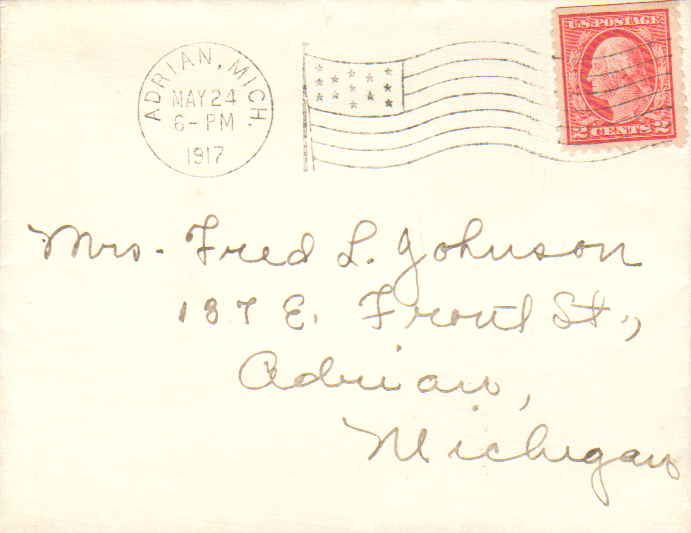 ADRIAN, MICH.
MAY 24
6-PM
1917
U.S. POSTAGE
2 CENTS 2
Mrs. Fred L. Johnson
137 E. Front St.,
Adrian,
Michigan